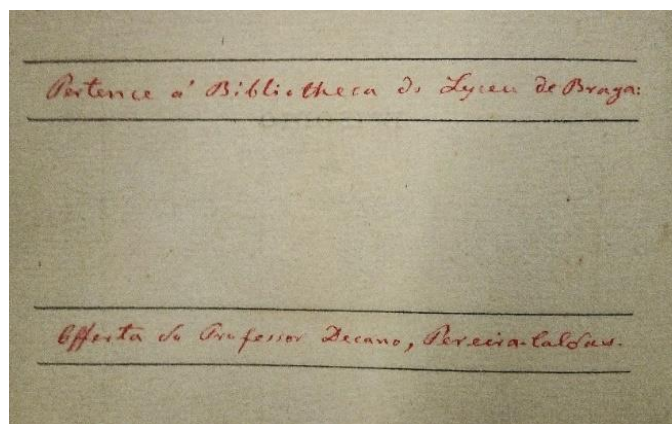 Pertence á Bibliotheca do Lyceu de Braga:
Offerta do Professor Decano, Pereira-Caldas.